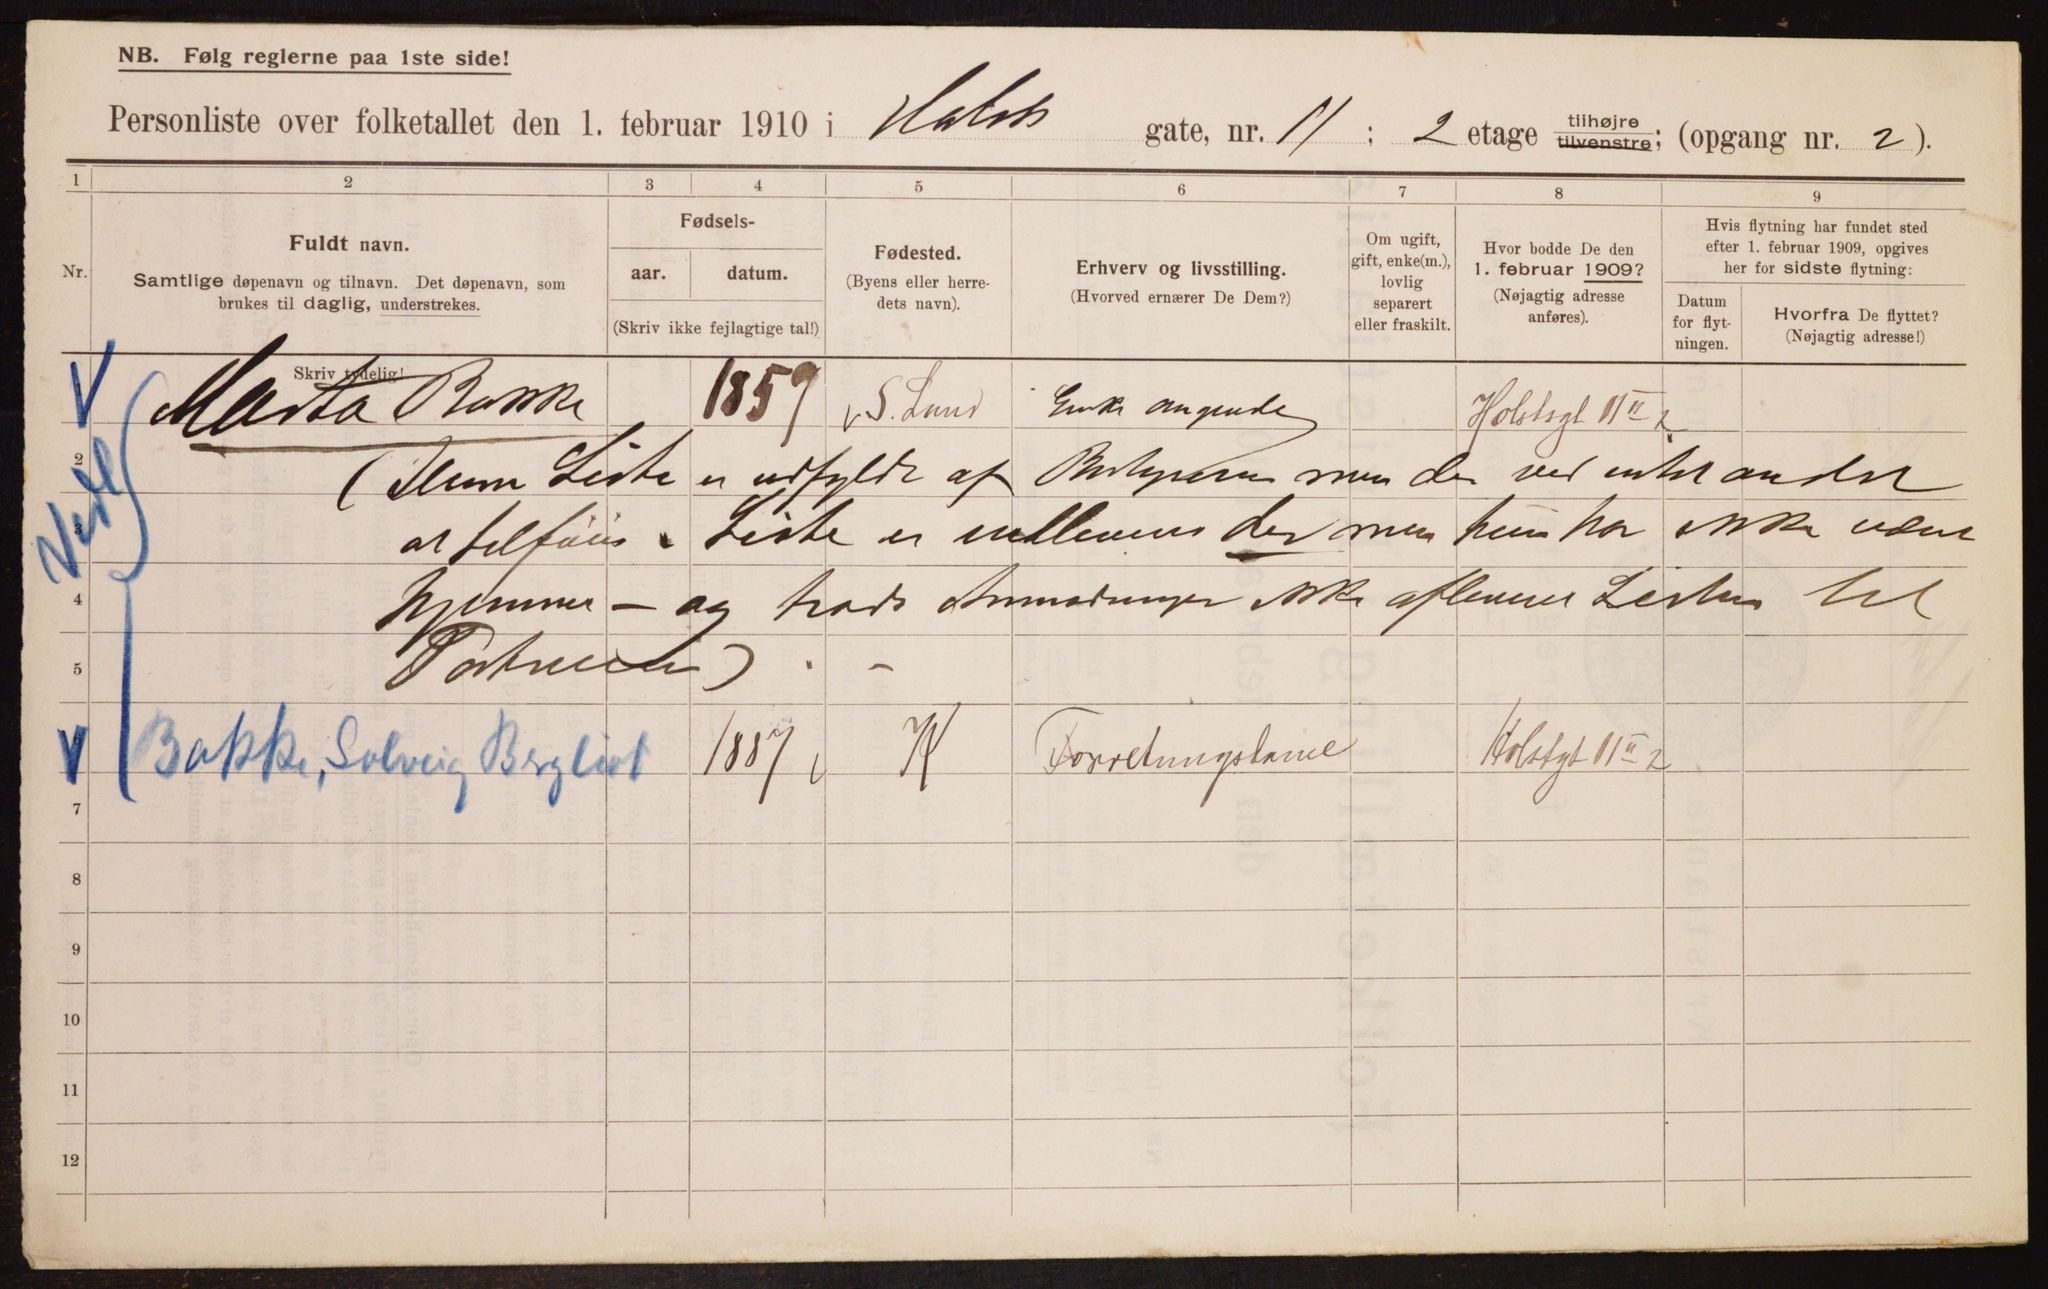 NB. Følg reglerne paa 1ste side!
Personliste over folketallet den 1. februar 1910 i Holsts gate, nr. 11; 2 etage tilhøjre tilvenstre; (opgang nr. 2).
1 2 3 4 5 6 7 8 9
Nr.
Fuldt navn.
Samtlige døpenavn og tilnavn. Det døpenavn, som
brukes til daglig, understrekes.
Skriv tydelig!
Fødsels-
aar. datum.
(Skriv ikke fejlagtige tal!)
Fødested.
(Byens eller herre-
dets navn).
Erhverv og livsstilling.
(Hvorved ernærer De Dem?)
Om ugift,
gift, enke(m.),
lovlig
separert
eller fraskilt.
Hvor bodde De den
1. februar 1909?
(Nøjagtig adresse
anføres).
Hvis flytning har fundet sted
efter 1. februar 1909, opgives
her for sidste flytning:
Datum
for flyt-
ningen.
Hvorfra De flyttet?
(Nøjagtig adresse!)
V Marta Bakke 1859 S. Land Enke Holstsgt 11 II 2
2 (Denne Liste er udfyldt af men der ved intet andet
3 at tilføie. Liste er indleveret der men hun har ikke været
4 hjemme – og trods Anmodninger ikke afleveret Listen til
5 Portneren) . –
V 6 Bakke, Solveig Bergliot 1887 K Forretningsdame Holstgt 11 II 2
7
8
9
10
11
12